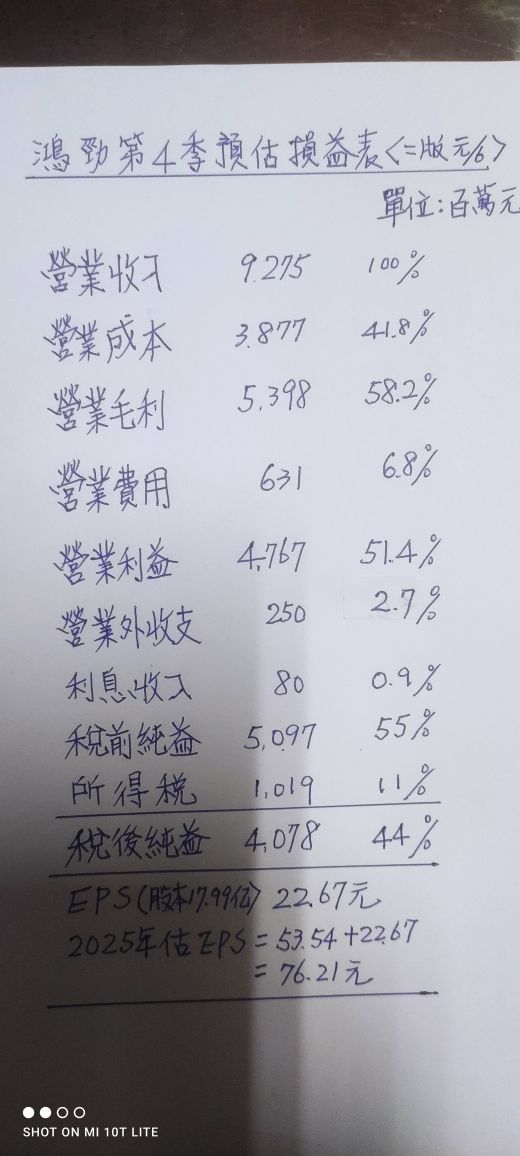 鴻勁第4季預估損益表<二版元/6>
單位:百萬元
營業收入 9.275 100%
營業成本 3.877 41.8%
營業毛利 5.398 58.2%
營業費用 631 6.8%
營業利益 4.767 51.4%
營業外收支 250 2.7%
利息收入 80 0.9%
稅前純益 5.097 55%
所得稅 1.019 11%
稅後純益 4.078 44%
EPS(股本17.99億) 22.67元
2025年估EPS=53.54+22.67
=76.21元
SHOT ON MI 10T LITE